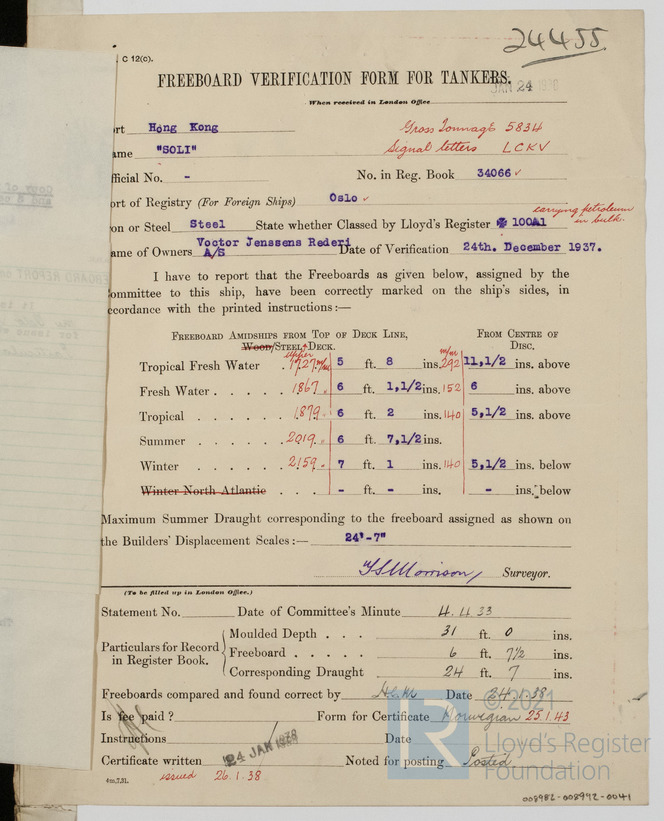 24455
C 12(c).
FREEBOARD VERIFICATION FORM FOR TANKERS.
JAN 24
When received in London Office
ort Hong Kong Gross Tonnage 5834
ame "SOLI" Signal letters LCKV
fficial No. - No. in Reg. Book 34066 ✓
ort of Registry (For Foreign Ships) Oslo ✓
carrying petroleum in bulk.
on or Steel Steel State whether Classed by Lloyd's Register ✠ 100A1
ame of Owners Voctor Jenssens Rederi A/S Date of Verification 24th. December 1937.
I have to report that the Freeboards as given below, assigned by the
ommittee to this ship, have been correctly marked on the ship's sides, in
ccordance with the printed instructions:—
FREEBOARD AMIDSHIPS FROM TOP OF DECK LINE, FROM CENTRE OF
Wood/STEEL DECK. DISC.
upper m/m
Tropical Fresh Water 1727 m/m 5 ft. 8 ins. 292 11,1/2 ins. above
Fresh Water . . . . . 1867 " 6 ft. 1,1/2 ins. 152 6 ins. above
Tropical . . . . . . 1879 " 6 ft. 2 ins. 140 5,1/2 ins. above
Summer . . . . . . 2019 " 6 ft. 7,1/2 ins.
Winter . . . . . . 2159 " 7 ft. 1 ins. 140 5,1/2 ins. below
Winter North Atlantic . . . - ft. - ins. - ins. below
Maximum Summer Draught corresponding to the freeboard assigned as shown on
the Builders' Displacement Scales:— 24'-7"
Morrison Surveyor.
(To be filled up in London Office.)
Statement No. Date of Committee's Minute 4.11.33
Particulars for Record in Register Book.
Moulded Depth . . . 31 ft. 0 ins.
Freeboard . . . . . 6 ft. 7½ ins.
Corresponding Draught 24 ft. 7 ins.
Freeboards compared and found correct by Date 24.1.38
Is fee paid? Form for Certificate Norwegian 25.1.43
Instructions Date
Certificate written 24 JAN 1938 Noted for posting Posted
4m,7,31. issued 26.1.38
© 2021
LR
Lloyd's Register
Foundation
008982-008992-0041